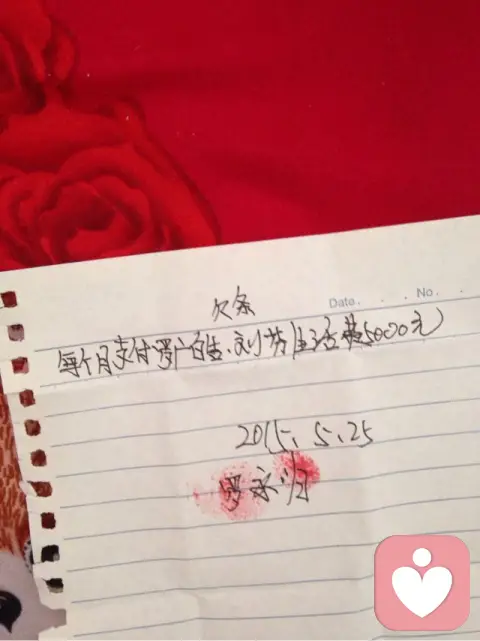 欠条
Date. . . No. .
每个月支付罗广自生、刘芳(生活费5000元)
2015、5、25
罗永归